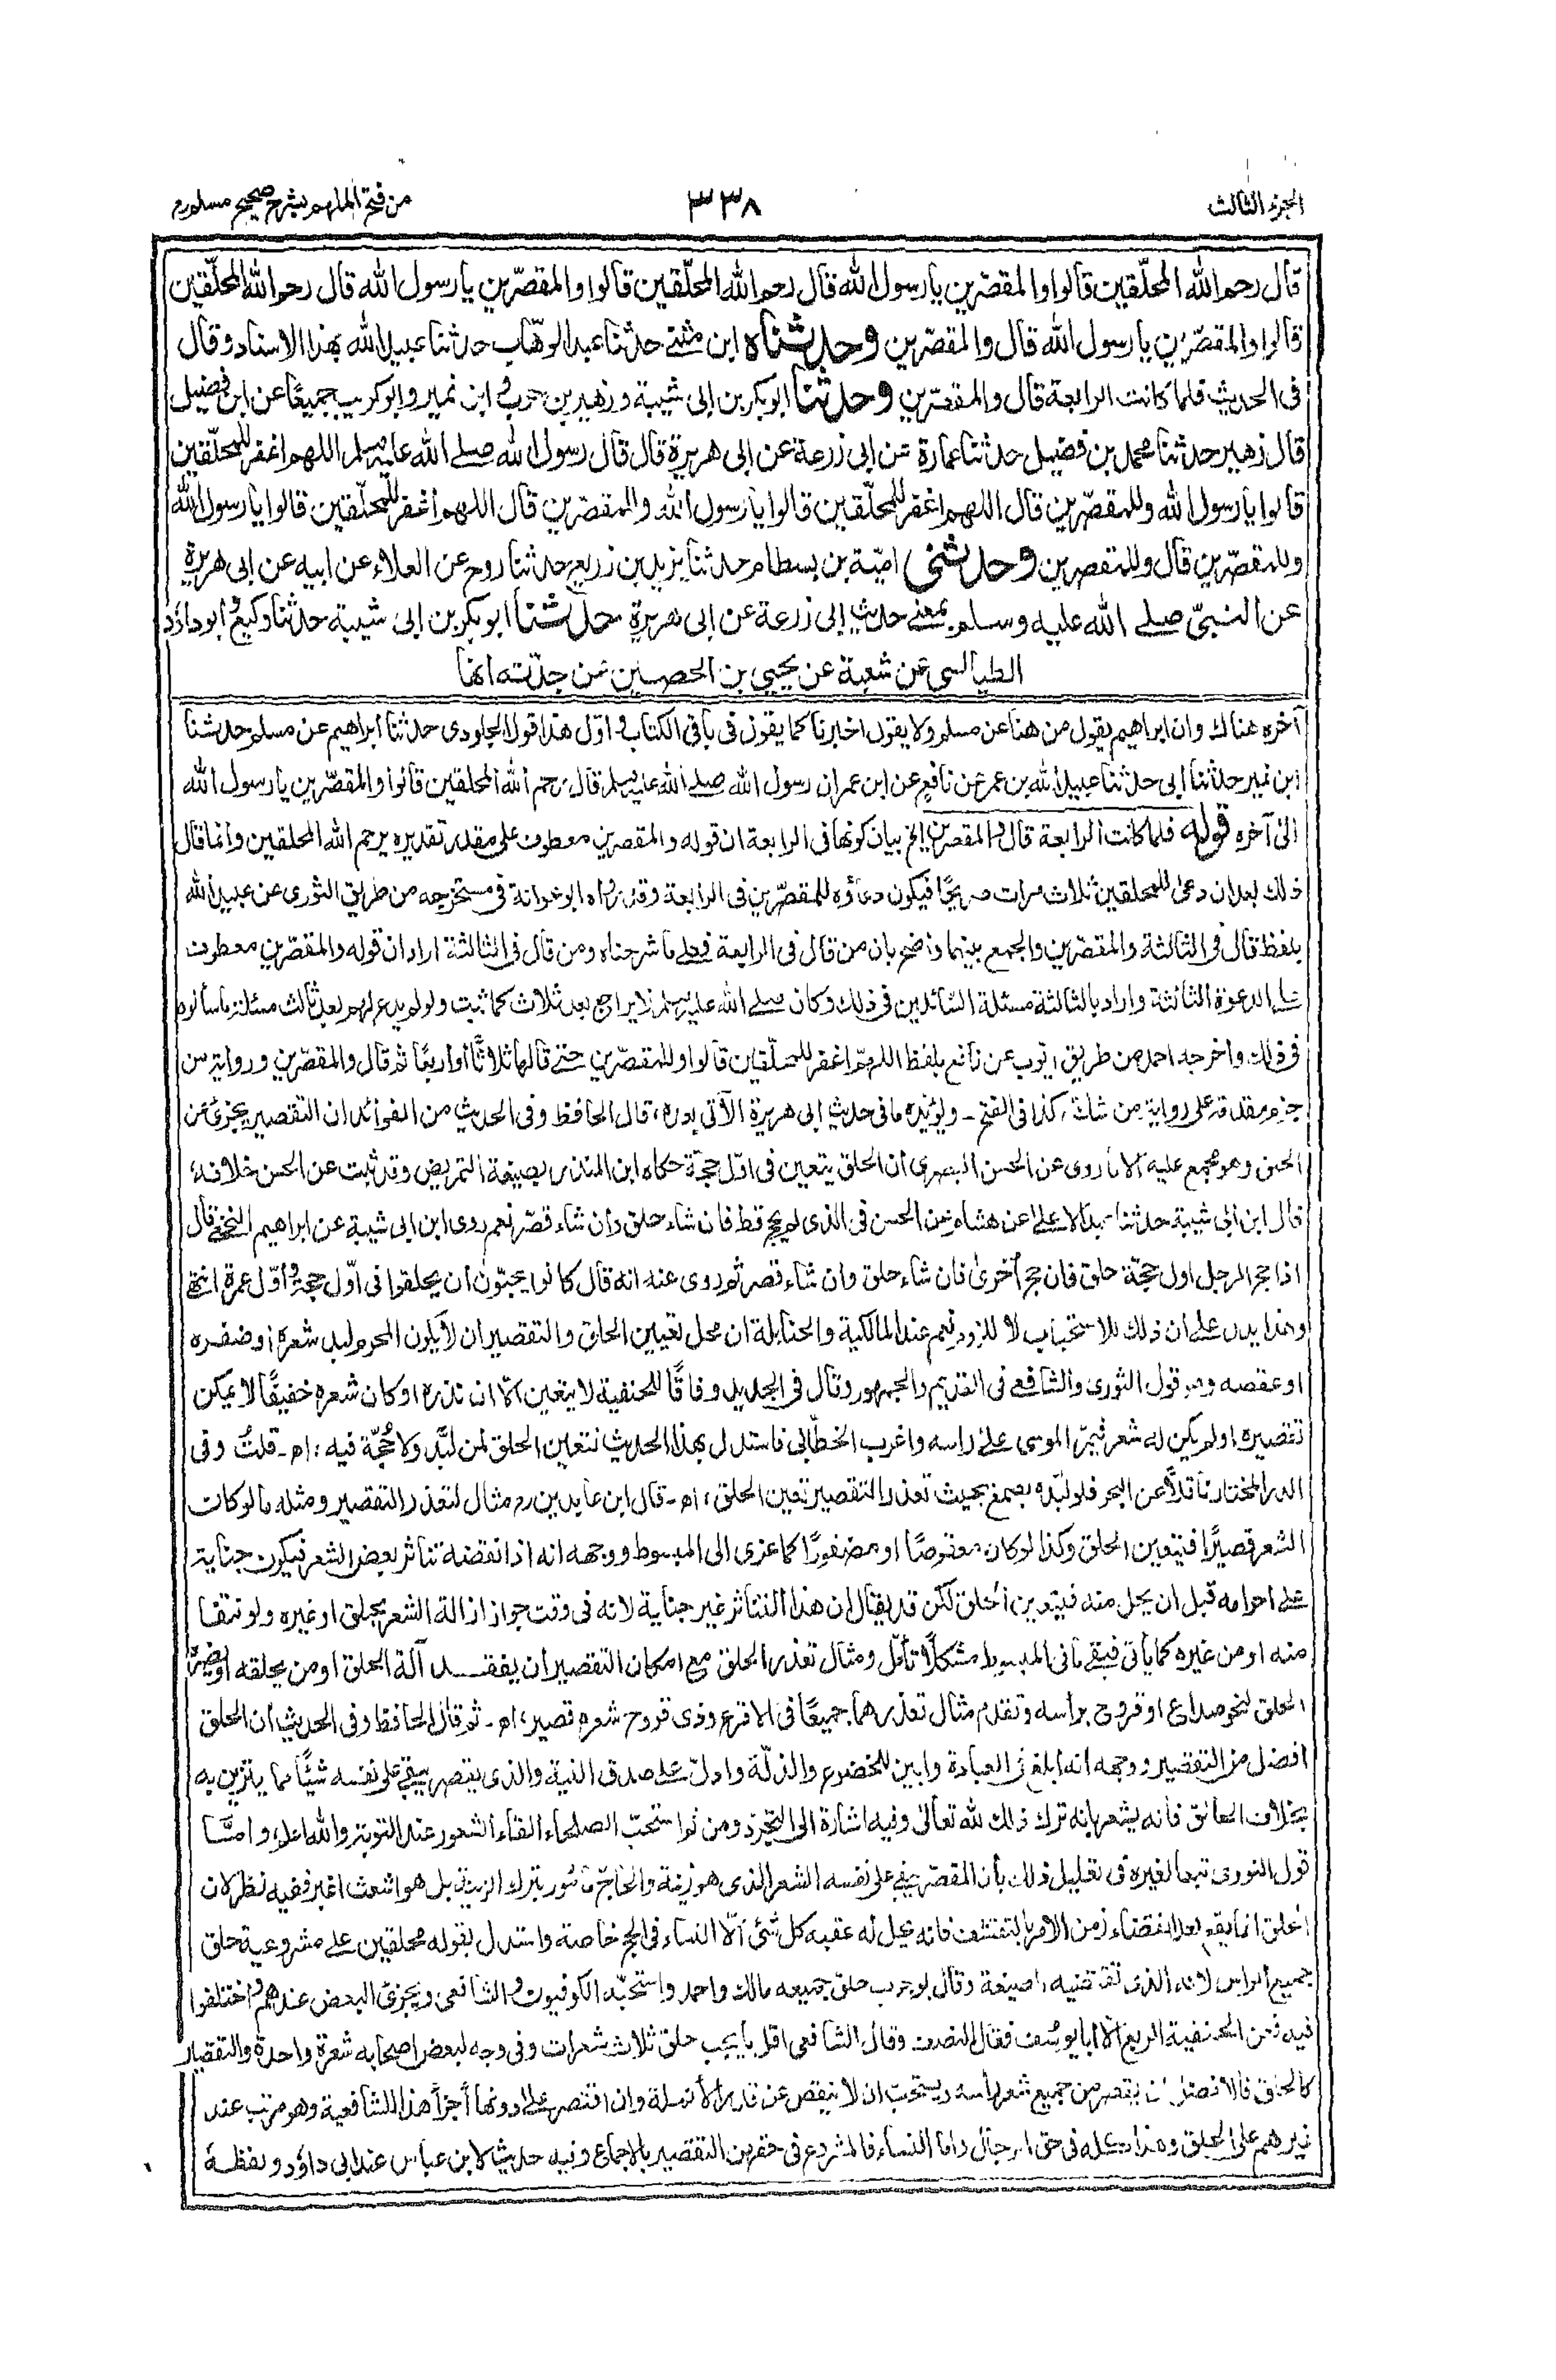 الجزء الثالث
٣٣٨
من فتح الملهم بشرح صحيح مسلم
قال رحم الله المحلّقين قالوا والمقصّرين يا رسول الله قال رحم الله المحلّقين قالوا والمقصّرين يا رسول الله قال رحم الله المحلّقين
قالوا والمقصّرين يا رسول الله قال والمقصّرين وحدثناه ابن مثنى حدثنا عبد الوهّاب حدثنا عبيد الله بهذا الاسناد وقال
فى الحديث فلما كانت الرابعة قال والمقصّرين وحدثنا ابو بكر بن ابى شيبة وزهير بن حرب و ابن نمير وابو كريب جميعًا عن ابن فضيل
قال زهير حدثنا محمد بن فضيل حدثنا عمارة عن ابى زرعة عن ابى هريرة قال قال رسول الله صلى الله عليه وسلم اللهم اغفر للمحلّقين
قالوا يا رسول الله وللمقصّرين قال اللهم اغفر للمحلّقين قالوا يا رسول الله وللمقصّرين قال اللهم اغفر للمحلّقين قالوا يا رسول الله
وللمقصّرين قال وللمقصرين وحدثنى اميّة بن بسطام حدثنا يزيد بن زريع حدثنا روح عن العلاء عن ابيه عن ابى هريرة
عن النبىّ صلى الله عليه وسلم بمعنى حديث ابى زرعة عن ابى هريرة حدثنا ابو بكر بن ابى شيبة حدثنا وكيع و ابو داؤد
الطيالسى عن شعبة عن يحيى بن الحصين عن جدّته انها
آخره هناك وان ابراهيم يقول من هنا عن مسلم ولا يقول اخبرنا كما يقول فى باقى الكتاب و اوّل هذا قول الجلودى حدثنا ابراهيم عن مسلم حدثنا
ابن نمير حدثنا ابى حدثنا عبيد الله بن عمر عن نافع عن ابن عمر ان رسول الله صلى الله عليه وسلم قال رحم الله المحلقين قالوا والمقصّرين يا رسول الله
الى آخره قوله فلما كانت الرابعة قال والمقصرين الخ بيان كونها فى الرابعة ان قوله والمقصرين معطوف على مقدر تقديره يرحم الله المحلقين وانما قال
ذلك بعد ان دعى للمحلقين ثلاث مرات صريحًا فيكون دعاؤه للمقصّرين فى الرابعة وقد رواه ابو عوانة فى مستخرجه من طريق الثورى عن عبيد الله
بلفظ قال فى الثالثة والمقصّرين والجمع بينهما واضح بان من قال فى الرابعة فعلى ما شرحناه ومن قال فى الثالثة اراد ان قوله والمقصّرين معطوف
على الدعوة الثالثة واراد بالثالثة مسئلة السّائلين فى ذلك وكان صلى الله عليه وسلم لا يراجع بعد ثلاث كما ثبت ولو لم يدع لهم بعد ثالث مسئلة ما سألوه
فى ذلك واخرجه احمد من طريق ايوب عن نافع بلفظ اللهمّ اغفر للمحلّقين قالوا وللمقصّرين حتى قالها ثلاثًا او اربعًا ثم قال والمقصّرين ورواية من
جزم مقدمة على رواية من شك، كذا فى الفتح - ويؤيده ما فى حديث ابى هريرة الآتى بعده، قال الحافظ وفى الحديث من الفوائد ان التقصير يجزئ عن
الحلق وهو مجمع عليه الا ما روى عن الحسن البصرى ان الحلق يتعين فى اوّل حجّة حكاه ابن المنذر بصيغة التمريض وقد ثبت عن الحسن خلافه،
قال ابن ابى شيبة حدثنا عبد الاعلى عن هشام عن الحسن فى الذى لم يحج قط فان شاء حلق وان شاء قصّر نعم روى ابن ابى شيبة عن ابراهيم النخعى قال
اذا حج الرجل اول حجّة حلق فان حج اخرى فان شاء حلق وان شاء قصر ثم روى عنه انه قال كانوا يحبّون ان يحلقوا فى اوّل حجة و اوّل عمرة انتهى
وهذا يدل على ان ذلك للاستحباب لا للزوم نعم عند المالكية والحنابلة ان محل تعيين الحلق والتقصير ان لا يكون المحرم لبد شعره او ضفره
او عقصه وهو قول الثورى والشافعى فى القديم والجمهور وقال فى الجديد وفاقًا للحنفية لا يتعين الّا ان نذره او كان شعره خفيفًا لا يمكن
تقصيره او لم يكن له شعر فيمرّ الموسى على راسه واغرب الخطّابى فاستدل بهذا الحديث لتعين الحلق لمن لبّد ولا حُجّة فيه، اه - قلتُ وفى
الدر المختار ناقلاً عن البحر فلو لبّده بصمغ بحيث تعذر التقصير تعين الحلق، اه - قال ابن عابدين رم مثال لتعذر التقصير ومثله ما لو كان
الشعر قصيرًا فيتعين الحلق وكذا لو كان معقوصًا او مضفورًا كما عزى الى المبسوط ووجهه انه اذا نقضه تناثر بعض الشعر فيكون جناية
على احرامه قبل ان يحل منه فيتعين الحلق لكن قد يقال ان هذا التناثر غير جناية لانه فى وقت جواز ازالة الشعر بحلق او غيره ولو نتفا
منه او من غيره كما يأتى فبقى ما فى المبسوط مشكلاً تأمّل ومثال تعذر الحلق مع امكان التقصير ان يفقد آلة الحلق او من يحلقه او يضرّه
الحلق لنحو صداع او قروح برأسه وتقدم مثال تعذرهما جميعًا فى الاقرع وذى قروح شعره قصير، اه - ثم قال الحافظ وفى الحديث ان الحلق
افضل من التقصير ووجهه انه ابلغ فى العبادة وابين للخضوع والذلّة وادلّ على صدق النية والذى يقصر يبقى على نفسه شيئًا مما يتزين به
بخلاف الحالق فانه يشعر بانه ترك ذلك لله تعالى وفيه اشارة الى التجرّد ومن ثم استحبّ الصلحاء القاء الشعور عند التوبة والله اعلم، و امّا
قول النووى تبعا لغيره فى تعليل ذلك بأن المقصّر يبقى على نفسه الشعر الذى هو زينة والحاجّ مأمور بترك الزينة بل هو اشعث اغبر ففيه نظر لان
الحلق انما يقع بعد انقضاء زمن الامر بالتقشف فانه يحل له عقبه كل شئ الّا النساء فى الحج خاصة واستدل بقوله محلقين على مشروعية حلق
جميع الراس لانه الذى تقتضيه الصيغة وقال بوجوب حلق جميعه مالك واحمد واستحبّه الكوفيون و الشافعى ويجزئ البعض عندهم و اختلفوا
فيه فعن الحنفية الربع الّا ابا يوسف فقال النصف وقال الشافعى اقل ما يجب حلق ثلاث شعرات وفى وجه لبعض اصحابه شعرة واحدة والتقصير
كالحلق فالافضل ان يقصر من جميع شعر رأسه ويستحبّ ان لا ينقص عن قدر الانملة وان اقتصر على دونها أجزأ هذا للشافعية وهو مرتب عند
غيرهم على الحلق وهذا كله فى حق الرجال واما النساء فالمشروع فى حقهن التقصير بالاجماع وفيه حديث لابن عباس عند ابى داؤد ولفظه